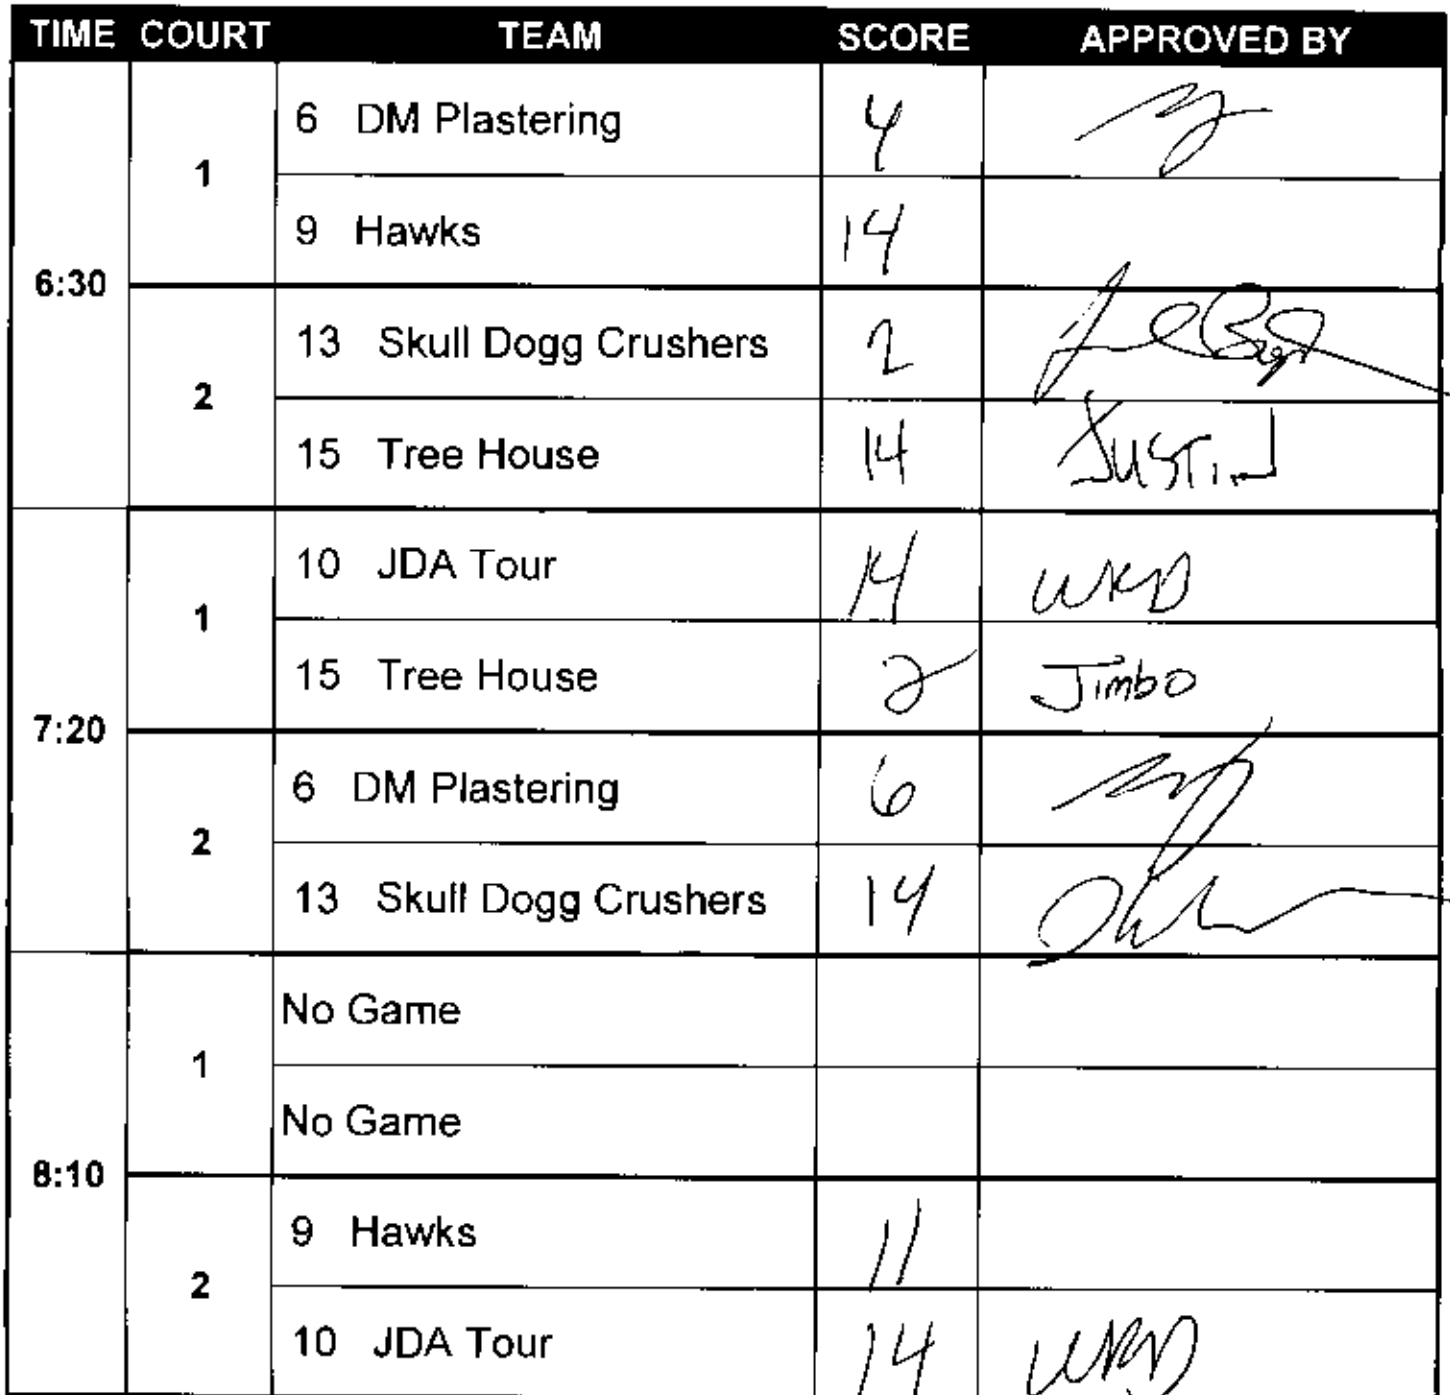 TIME COURT TEAM SCORE APPROVED BY
6:30
1
6 DM Plastering 4
9 Hawks 14
2
13 Skull Dogg Crushers 2
15 Tree House 14 JUSTIN
7:20
1
10 JDA Tour 14 WKD
15 Tree House 2 Jimbo
2
6 DM Plastering 6
13 Skull Dogg Crushers 14
8:10
1
No Game
No Game
2
9 Hawks 11
10 JDA Tour 14 WKD